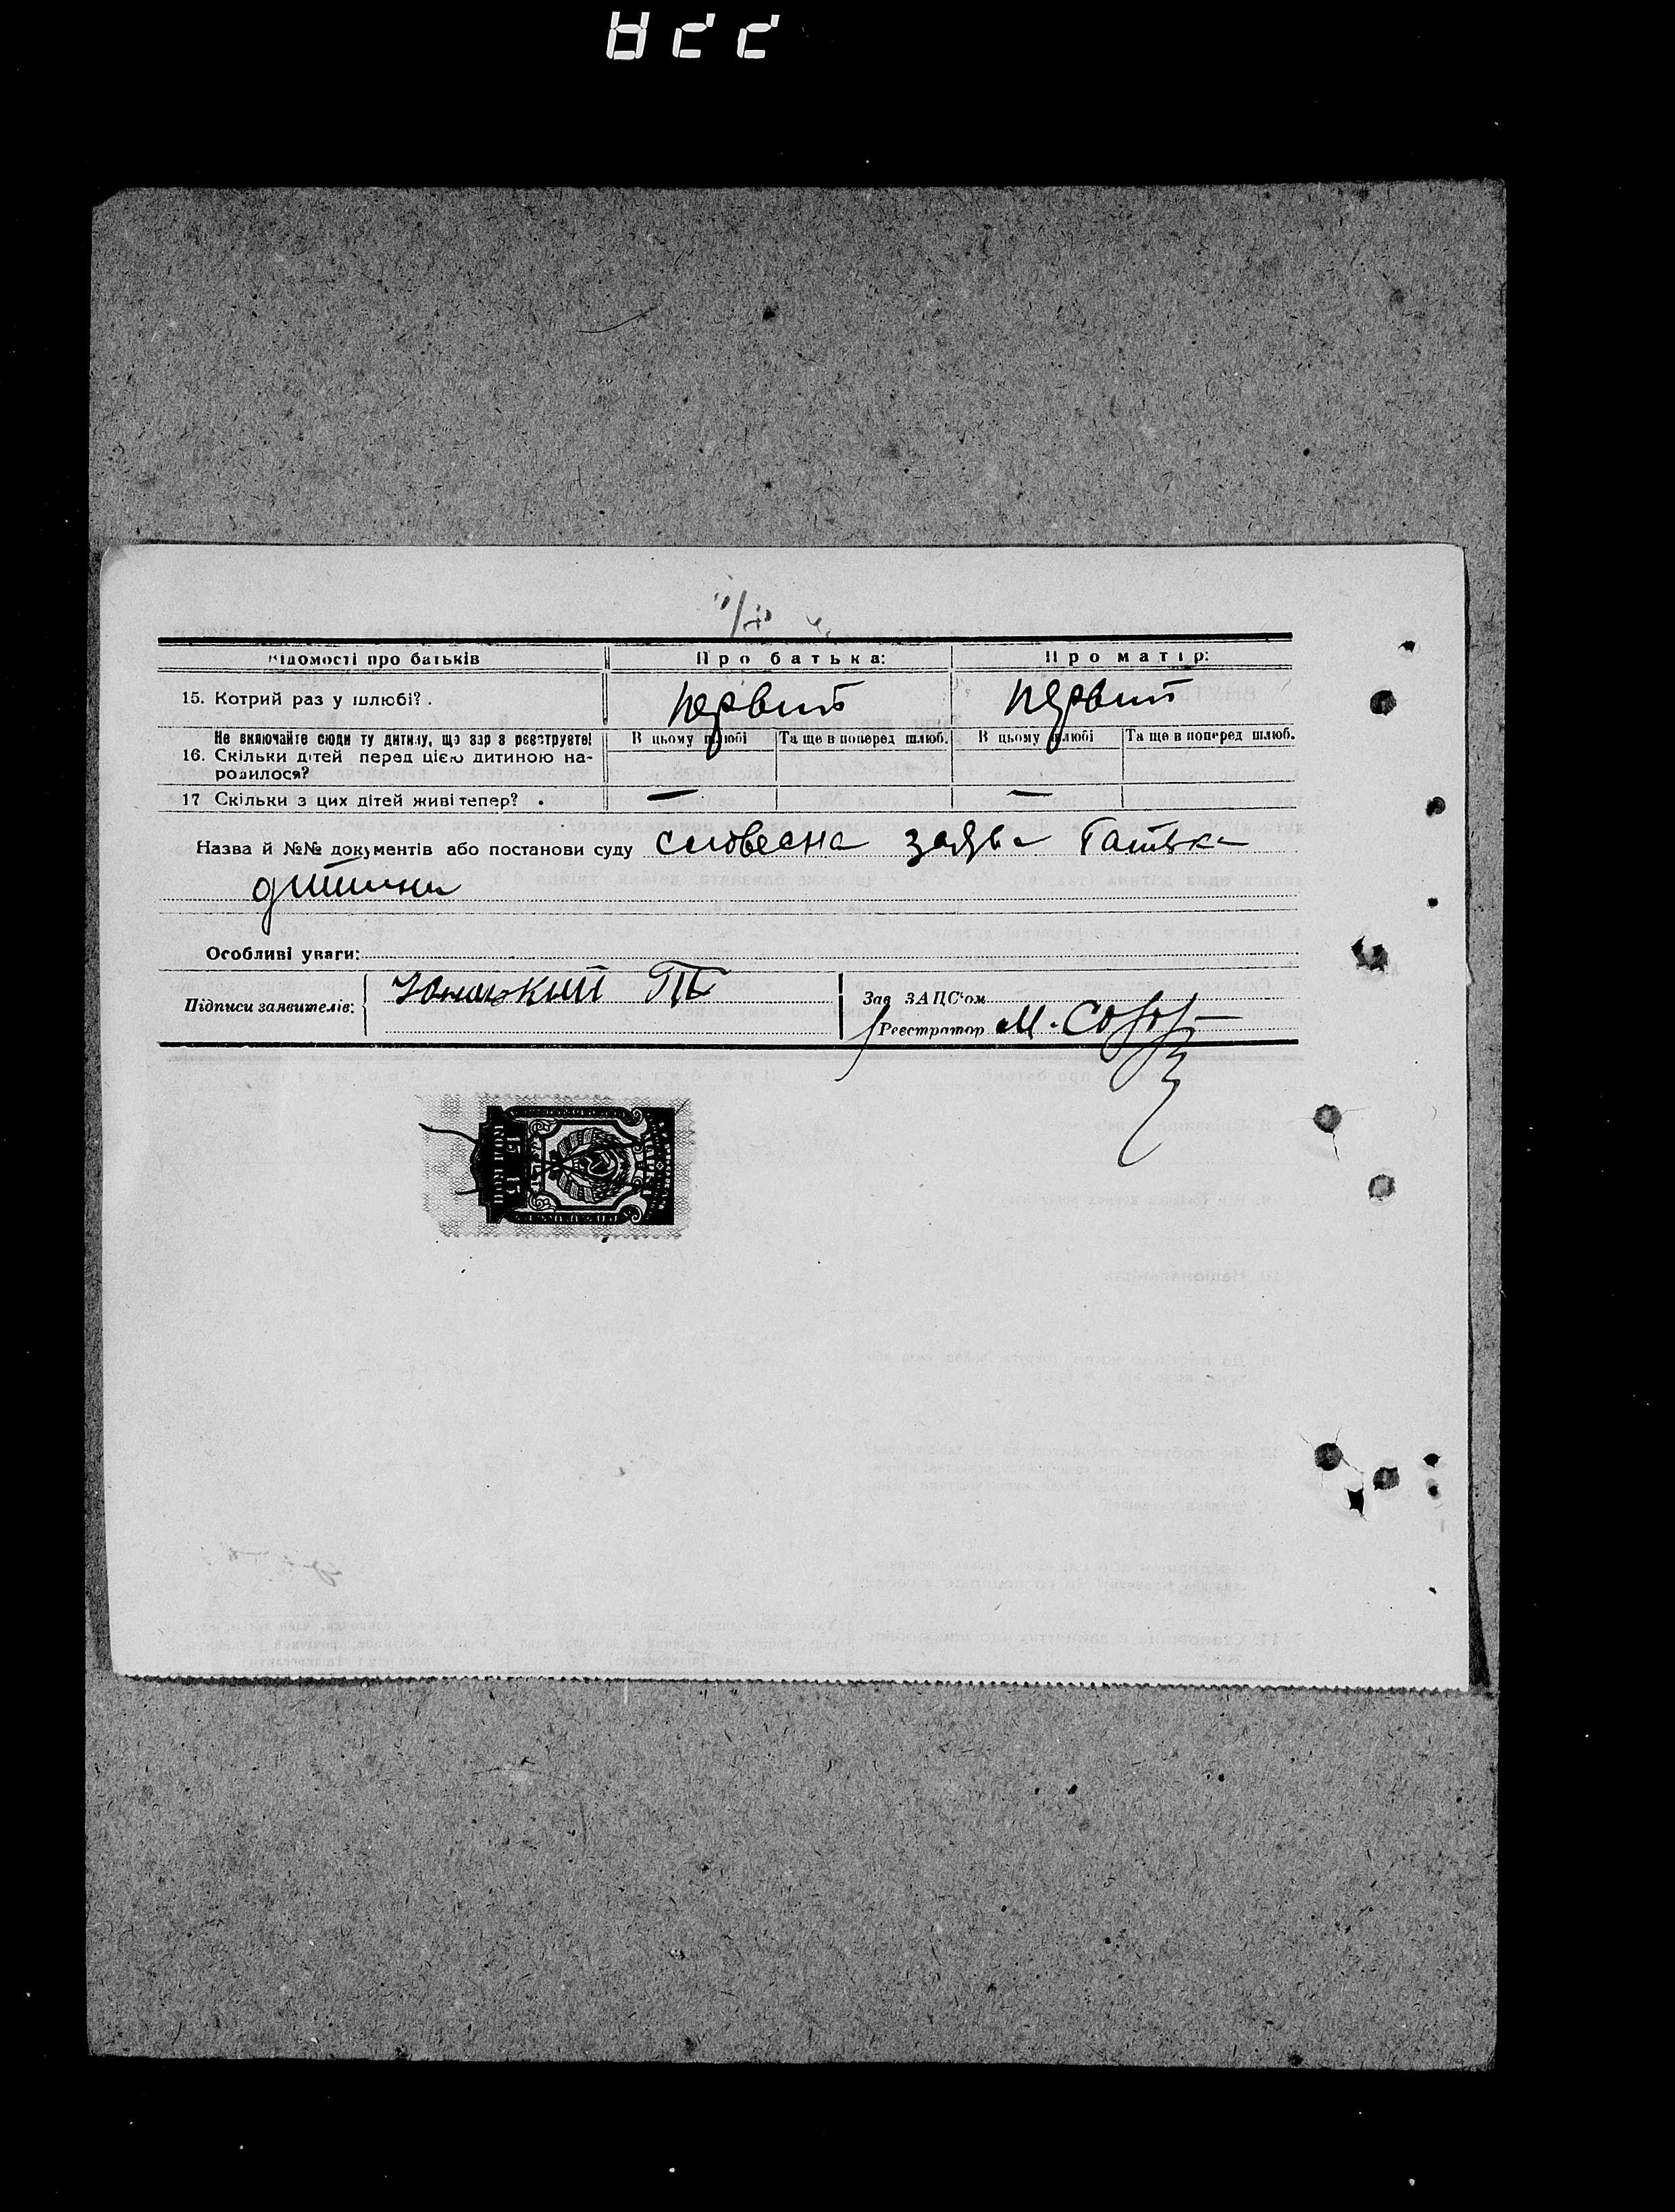 Відомості про батьків
Про батька:
Про матір:
15. Котрий раз у шлюбі?.
первий
первий
Не включайте сюди ту дитину, що зараз реєструєте!
В цьому шлюбі
Та ще в поперед шлюб.
В цьому шлюбі
Та ще в поперед шлюб.
16. Скільки дітей перед цією дитиною на-
родилося?
17 Скільки з цих дітей живі тепер? .
—
—
Назва й №№ документів або постанови суду словесна заява батька
дитини
Особливі уваги:
Підписи заявителів:
Зав ЗАЦС'ом
Реєстратор М.
15 15